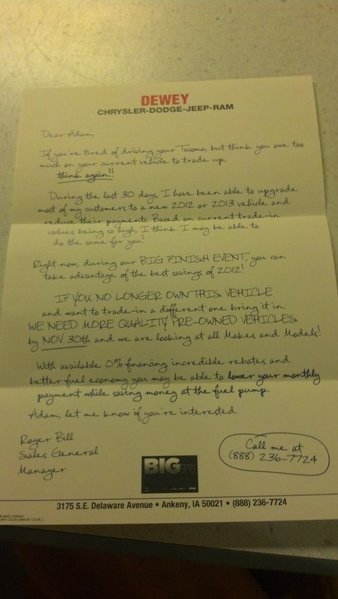 DEWEY
CHRYSLER-DODGE-JEEP-RAM
Dear Adam,
If you're tired of driving your Tacoma, but think you owe too
much on your current vehicle to trade up,
think again!!
During the last 30 days, I have been able to upgrade
most of my customers to a new 2012 or 2013 vehicle and
reduce their payments. Based on current trade-in
values being so high, I think I may be able to
do the same for you!
Right now, during our BIG FINISH EVENT, you can
take advantage of the best savings of 2012!
IF YOU NO LONGER OWN THIS VEHICLE
and want to trade-in a different one bring it in
WE NEED MORE QUALITY PRE-OWNED VEHICLES
by NOV 30th and we are looking at all Makes and Models!
With available 0% financing incredible rebates and
better fuel economy you may be able to lower your monthly
payment while saving money at the fuel pump.
Adam, let me know if you're interested.
Roger Bill
Sales General
Manager
BIG
Call me at
(888) 236-7724
3175 S.E. Delaware Avenue • Ankeny, IA 50021 • (888) 236-7724